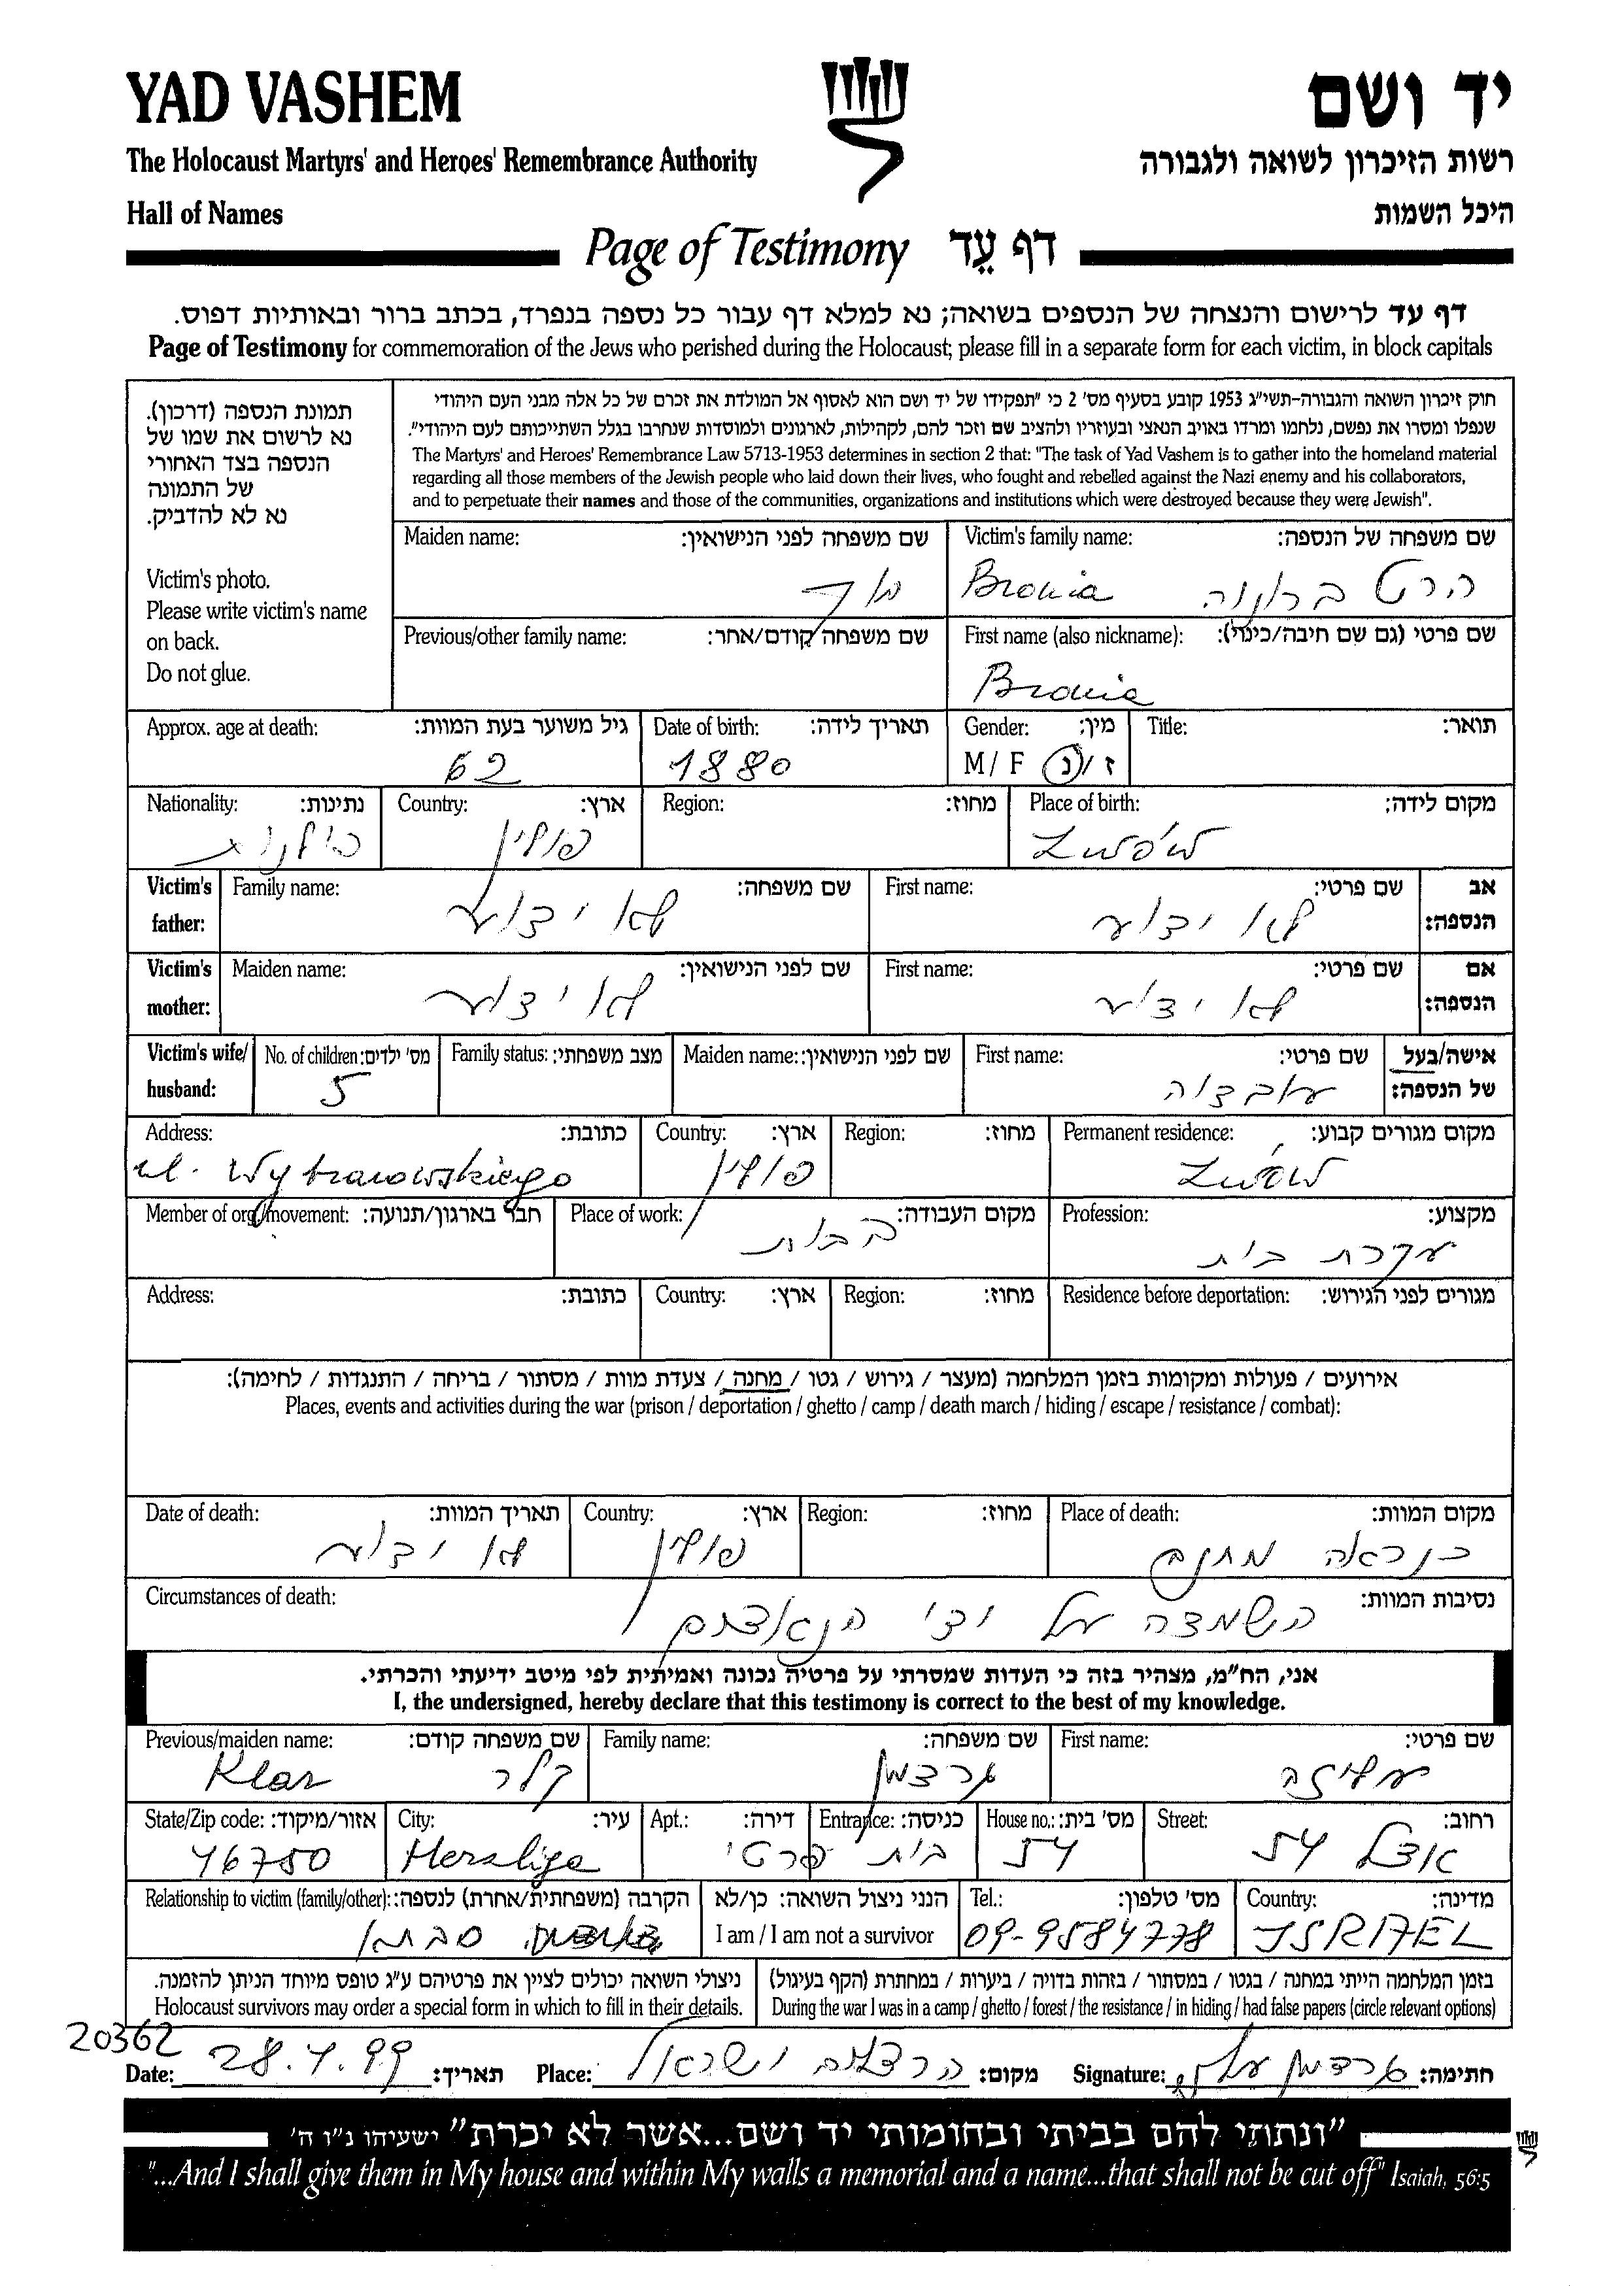 YAD VASHEM
יד ושם
The Holocaust Martyrs' and Heroes' Remembrance Authority
רשות הזיכרון לשואה ולגבורה
Hall of Names
היכל השמות
Page of Testimony דף עֵד
דף עד לרישום והנצחה של הנספים בשואה; נא למלא דף עבור כל נספה בנפרד, בכתב ברור ובאותיות דפוס.
Page of Testimony for commemoration of the Jews who perished during the Holocaust; please fill in a separate form for each victim, in block capitals
תמונת הנספה (דרכון).
נא לרשום את שמו של
הנספה בצד האחורי
של התמונה
נא לא להדביק.
Victim's photo.
Please write victim's name
on back.
Do not glue.
חוק זיכרון השואה והגבורה-תשי"ג 1953 קובע בסעיף מס' 2 כי "תפקידו של יד ושם הוא לאסוף אל המולדת את זכרם של כל אלה מבני העם היהודי
שנפלו ומסרו את נפשם, נלחמו ומרדו באויב הנאצי ובעוזריו ולהציב שם וזכר להם, לקהילות, לארגונים ולמוסדות שנחרבו בגלל השתייכותם לעם היהודי".
The Martyrs' and Heroes' Remembrance Law 5713-1953 determines in section 2 that: "The task of Yad Vashem is to gather into the homeland material
regarding all those members of the Jewish people who laid down their lives, who fought and rebelled against the Nazi enemy and his collaborators,
and to perpetuate their names and those of the communities, organizations and institutions which were destroyed because they were Jewish".
Maiden name: שם משפחה לפני הנישואין: Victim's family name: שם משפחה של הנספה:
Bronia הרט ברוניה
Previous/other family name: שם משפחה קודם/אחר: First name (also nickname): שם פרטי (גם שם חיבה/כינוי):
Bronia
Approx. age at death: גיל משוער בעת המוות: Date of birth: תאריך לידה: Gender: מין: Title: תואר:
62 1880 M / F ז / נ
Nationality: נתינות: Country: ארץ: Region: מחוז: Place of birth: מקום לידה:
פולנית פולין Lwów
Victim's father: Family name: שם משפחה: First name: שם פרטי: אב הנספה:
לא ידוע לא ידוע
Victim's mother: Maiden name: שם לפני הנישואין: First name: שם פרטי: אם הנספה:
לא ידוע לא ידוע
Victim's wife/ husband: No. of children: מס' ילדים: Family status: מצב משפחתי: Maiden name: שם לפני הנישואין: First name: שם פרטי: אישה/בעל של הנספה:
5 עובדיה
Address: כתובת: Country: ארץ: Region: מחוז: Permanent residence: מקום מגורים קבוע:
ul. Wybranowskiego פולין Lwów
Member of org./movement: חבר בארגון/תנועה: Place of work: מקום העבודה: Profession: מקצוע:
בבית עקרת בית
Address: כתובת: Country: ארץ: Region: מחוז: Residence before deportation: מגורים לפני הגירוש:
אירועים / פעולות ומקומות בזמן המלחמה (מעצר / גירוש / גטו / מחנה / צעדת מוות / מסתור / בריחה / התנגדות / לחימה):
Places, events and activities during the war (prison / deportation / ghetto / camp / death march / hiding / escape / resistance / combat):
Date of death: תאריך המוות: Country: ארץ: Region: מחוז: Place of death: מקום המוות:
לא ידוע פולין כנראה מחנה
Circumstances of death: נסיבות המוות:
השמדה על ידי הנאצים
אני, הח"מ, מצהיר בזה כי העדות שמסרתי על פרטיה נכונה ואמיתית לפי מיטב ידיעתי והכרתי.
I, the undersigned, hereby declare that this testimony is correct to the best of my knowledge.
Previous/maiden name: שם משפחה קודם: Family name: שם משפחה: First name: שם פרטי:
Klar קלר ארדמן עליזה
State/Zip code: אזור/מיקוד: City: עיר: Apt.: דירה: Entrance: כניסה: House no.: מס' בית: Street: רחוב:
46750 Herzliya בית פרטי 54 אצל 54
Relationship to victim (family/other): הקרבה (משפחתית/אחרת) לנספה: הנני ניצול השואה: כן/לא Tel.: מס' טלפון: Country: מדינה:
סבתא I am / I am not a survivor 09-9584778 ISRAEL
ניצולי השואה יכולים לציין את פרטיהם ע"ג טופס מיוחד הניתן להזמנה. בזמן המלחמה הייתי במחנה / בגטו / במסתור / בזהות בדויה / ביערות / במחתרת (הקף בעיגול)
Holocaust survivors may order a special form in which to fill in their details. During the war I was in a camp / ghetto / forest / the resistance / in hiding / had false papers (circle relevant options)
20362
Date: 28.4.99 תאריך: Place: הרצליה ישראל מקום: Signature: ארדמן עליזה חתימה:
"ונתתי להם בביתי ובחומותי יד ושם...אשר לא יכרת" ישעיהו נ"ו ה'
"...And I shall give them in My house and within My walls a memorial and a name...that shall not be cut off" Isaiah, 56:5